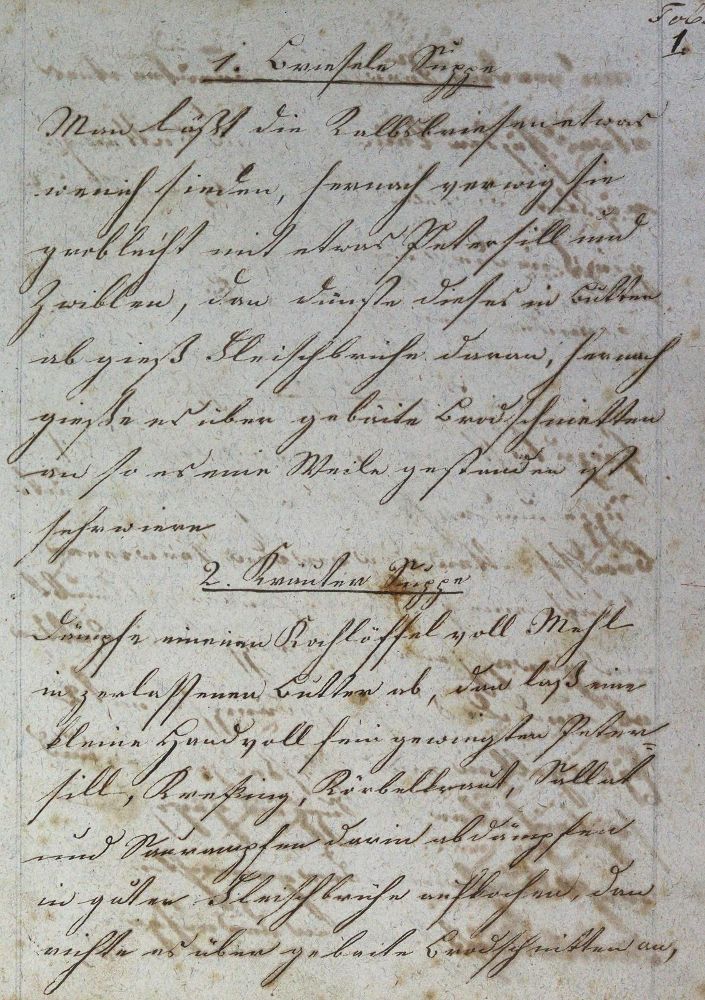 Fol.
1.
1. Briesele Suppe
Man läßt die Kalbsbriesen etwas
wenich sieden, hernach verwig sie
groblecht mit etwas Petersill und
Zwiblen, dan dünste dieses in Butter
ab gieß Fleischbrühe daran, hernach
gieße es über gebäite Brodschnitten
an so es eine Weile gestanden ist
2. Kräuter Suppe
Dämpfe einenen Kochlöffel voll Mehl
in zerlassenen Butter ab, dan laß eine
kleine Handvoll fein gewiegten Peter=
sill, Kreßing, Körbelkraut, Sallat
und Saurampfen darin abdämpfen
in guter Fleischbrühe aufkochen, dan
richte es über gebaite Brodschnitten an,